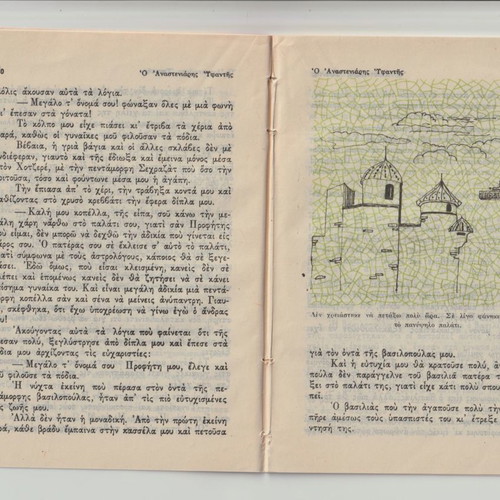 Ὁ Ἀναστενιάρης Ὑφαντῆς
κόλις ἄκουσαν αὐτὰ τὰ λόγια.
— Μεγάλο τ' ὄνομά σου! φώναξαν ὅλες μὲ μιὰ φωνὴ
ἔπεσαν στὰ γόνατα!
Τὸ κόλπο μου εἶχε πιάσει κι' ἔτριβα τὰ χέρια ἀπὸ
αρά, καθὼς οἱ γυναῖκες μοῦ φιλοῦσαν τὰ πόδια.
Βέβαια, ἡ γριὰ βάγια καὶ οἱ ἄλλες σκλάβες δὲν μὲ
νδιέφεραν, γιαυτὸ καὶ τῆς ἔδιωξα καὶ ἔμεινα μόνος μέσα
τὸν Χοτζερέ, μὲ τὴν πεντάμορφη Σεχραζὰτ ποὺ ὅσο τὴν
οιτοῦσα, τόσο καὶ φούντωνε μέσα μου ἡ ἀγάπη.
Τὴν ἔπιασα ἀπ' τὸ χέρι, τὴν τράβηξα κοντά μου καὶ
αθίζοντας στὸ χρυσὸ κρεββάτι τὴν ἔφερα δίπλα μου.
— Καλή μου κοπέλλα, τῆς εἶπα, σοῦ κάνω τὴν με-
άλη χάρη νἄρθω στὸ παλάτι σου, γιατὶ σὰν Προφήτης
οὺ εἶμαι, δὲν μπορῶ νὰ δεχθῶ τὴν ἀδικία ποὺ γίνεται εἰς
άρος σου. Ὁ πατέρας σου σὲ ἔκλεισε σ' αὐτὸ τὸ παλάτι,
ιατὶ σύμφωνα μὲ τοὺς ἀστρολόγους, κάποιος θὰ σὲ ξεγε-
άσει. Ἐδῶ ὅμως, ποὺ εἶσαι κλεισμένη, κανεὶς δὲν σὲ
λέπει καὶ ἑπομένως κανεὶς δὲν θὰ ζητήσει νὰ σὲ κάνει
όμιμη γυναίκα του. Καὶ εἶναι μεγάλη ἀδικία μιὰ πεντά-
ορφη κοπέλλα σὰν καὶ σένα νὰ μείνεις ἀνύπαντρη. Γιαυ-
, σκέφθηκα, ὅτι ἔχω ὑποχρέωση νὰ γίνω ἐγὼ ὁ ἄνδρας
ου!
Ἀκούγοντας αὐτὰ τὰ λόγια ποὺ φαίνεται ὅτι τῆς
εσαν πολύ, ξεγλύστρησε ἀπὸ δίπλα μου καὶ ἔπεσε στὰ
δια μου ἀρχίζοντας τὶς εὐχαριστίες:
— Μεγάλο τ' ὄνομά σου Προφήτη μου, ἔλεγε καὶ
οῦ φιλοῦσε τὰ πόδια.
Ἡ νύχτα ἐκείνη ποὺ πέρασα στὸν ὀντὰ τῆς πε-
τάμορφης βασιλοπούλας, ἦταν ἀπ' τὶς πιὸ εὐτυχισμένες
ς ζωῆς μου.
Ἀλλὰ δὲν ἦταν ἡ μοναδική. Ἀπὸ τὴν πρώτη ἐκείνη
ρά, κάθε βράδυ ἔμπαινα στὴν κασσέλα μου καὶ πετοῦσα
Ὁ Ἀναστενιάρης Ὑφαντῆς
Δὲν χρειάστηκε νὰ πετάξω πολὺ ὥρα. Σὲ λίγο φάνηκε
τὸ πανύψηλο παλάτι.
γιὰ τὸν ὀντὰ τῆς βασιλοπούλας μου.
Καὶ ἡ εὐτυχία μου θὰ κρατοῦσε πολύ, ἂ
πούλα δὲν παράγγελνε τοῦ βασιλιᾶ πατέρα τ
ξει στὸ παλάτι της, γιατὶ εἶχε κάτι πολὺ σπου
πεῖ.
Ὁ βασιλιάς ποὺ τὴν ἀγαποῦσε πολὺ τὴν
πῆρε ἀμέσως τοὺς ὑπασπιστές του κι' ἔτρεξε
ντησή της.